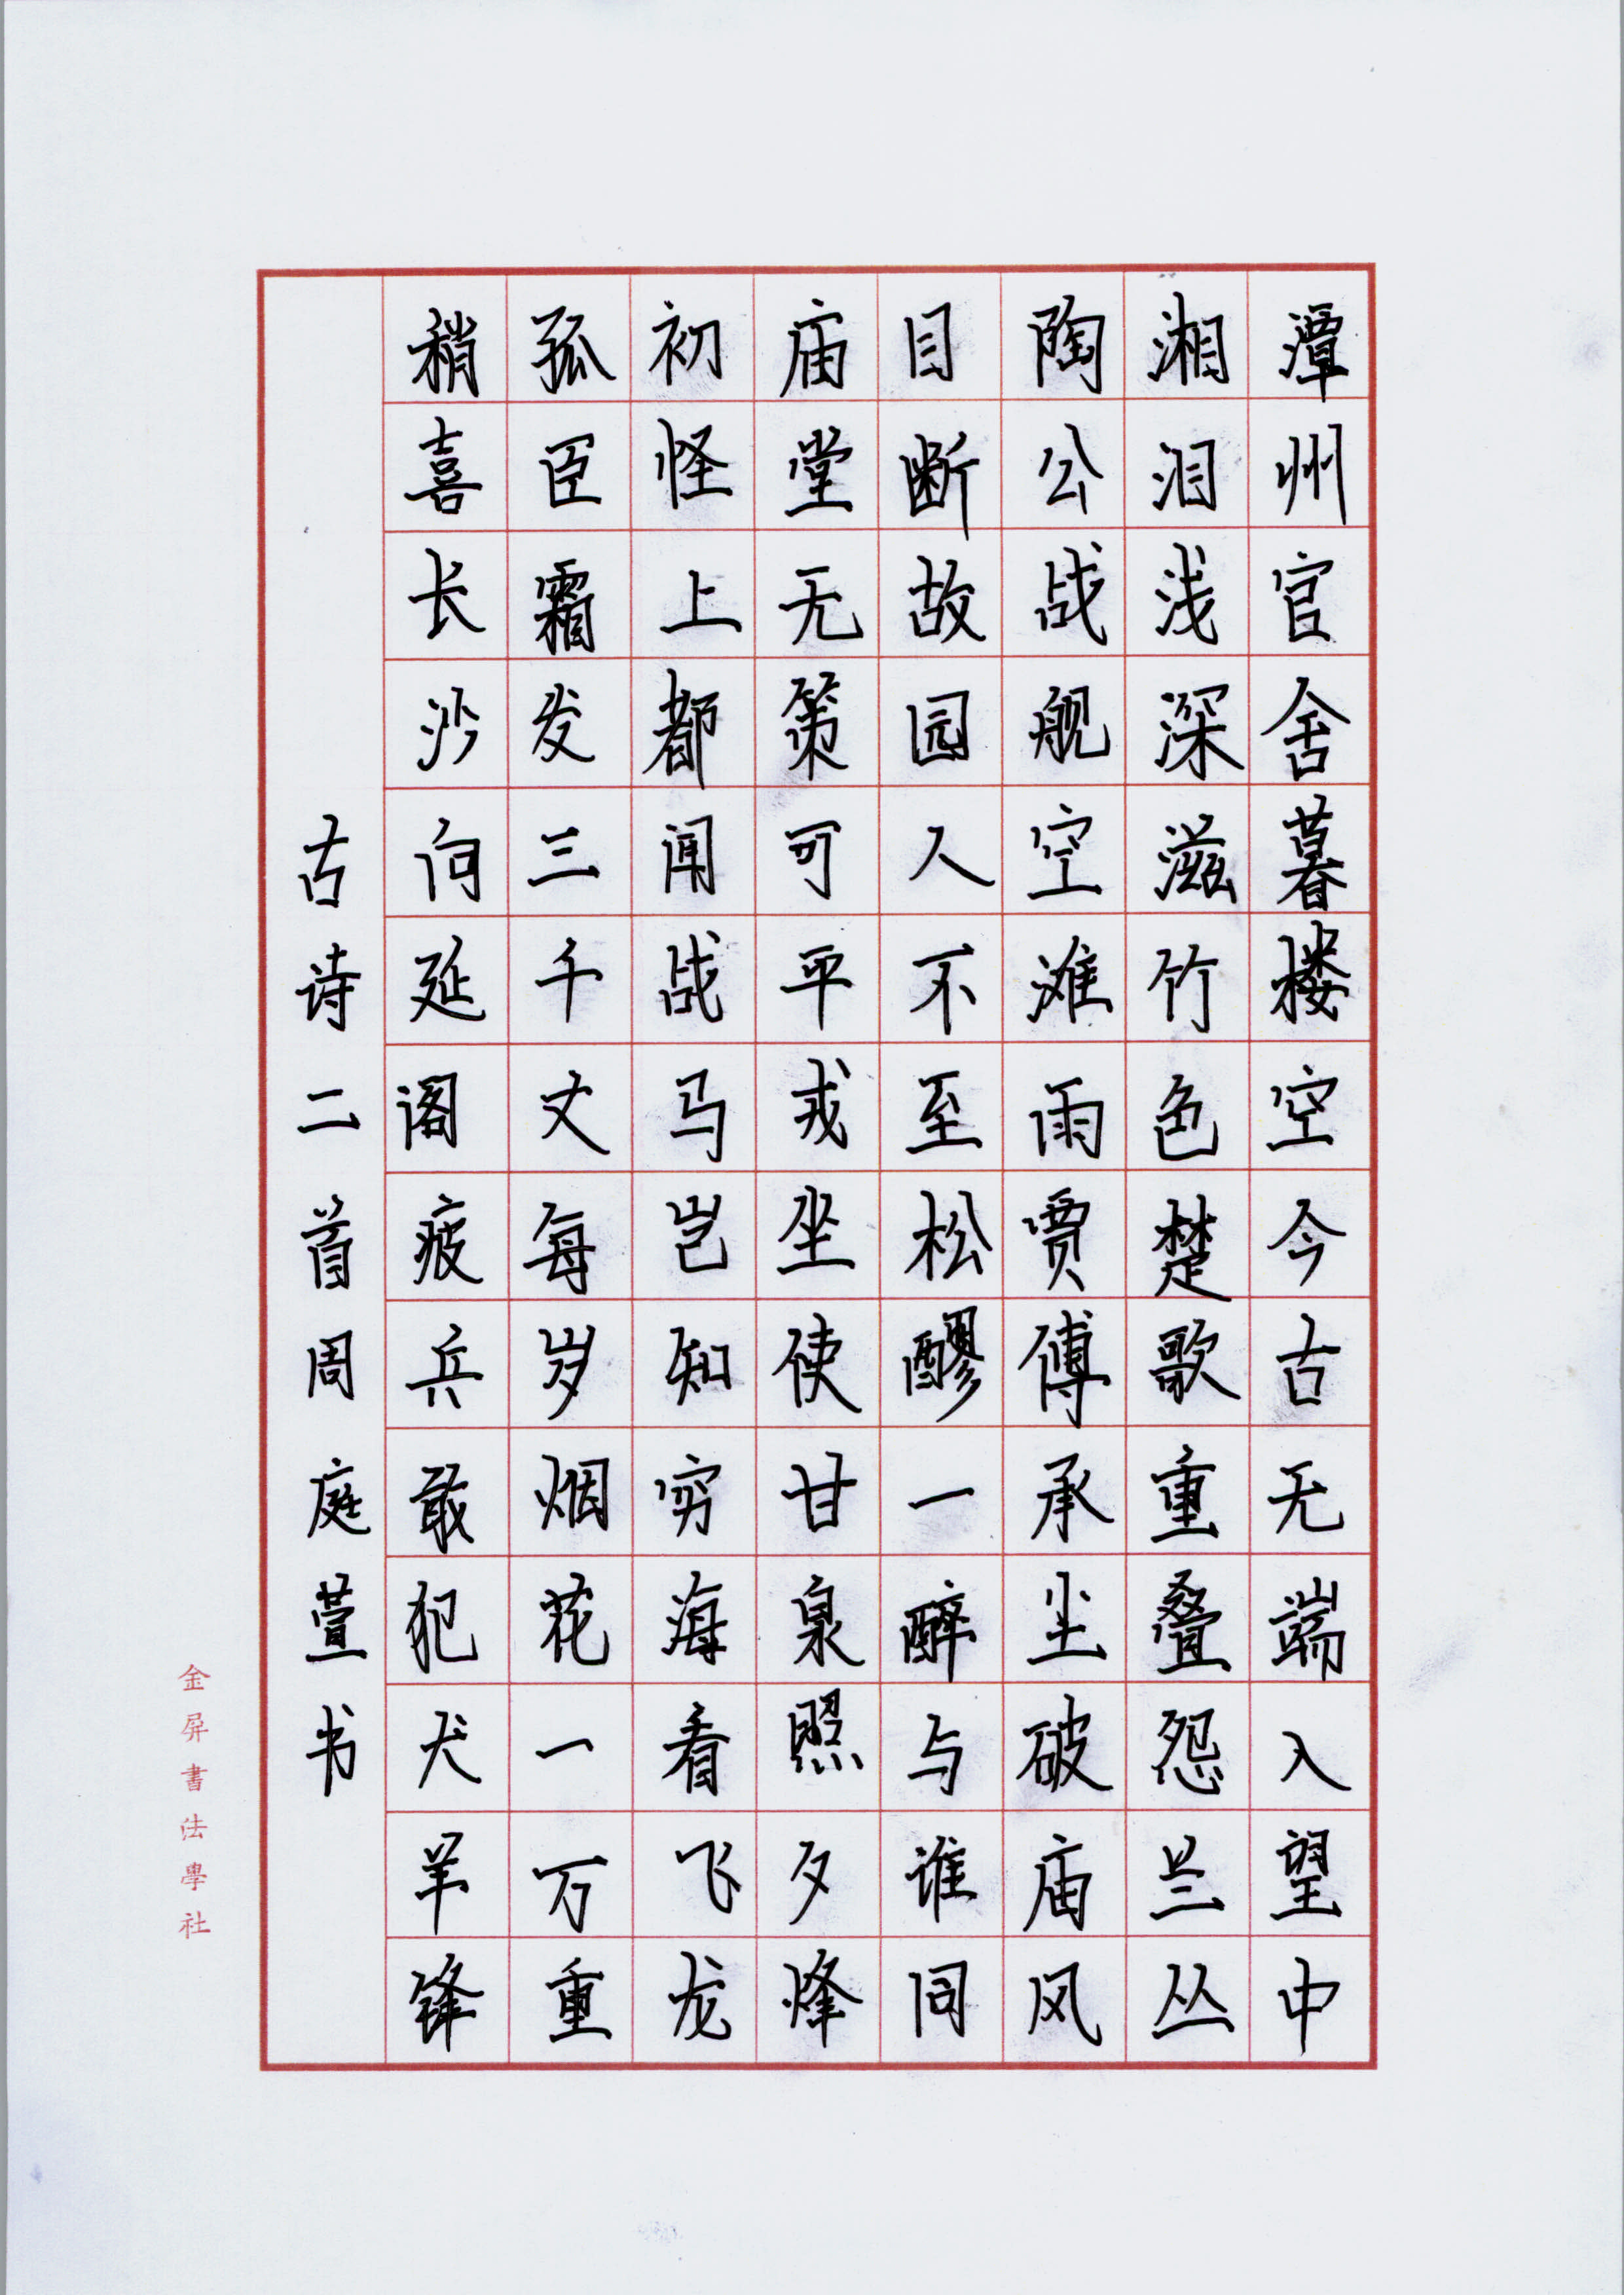 潭州官舍暮楼空今古无端入望中
湘泪浅深滋竹色楚歌重叠怨兰丛
陶公战舰空滩雨贾傅承尘破庙风
目断故园人不至松醪一醉与谁同
庙堂无策可平戎坐使甘泉照夕烽
初怪上都闻战马岂知穷海看飞龙
孤臣霜发三千丈每岁烟花一万重
稍喜长沙向延阁疲兵敢犯犬羊锋
古诗二首周庭萱书
金屏書法學社